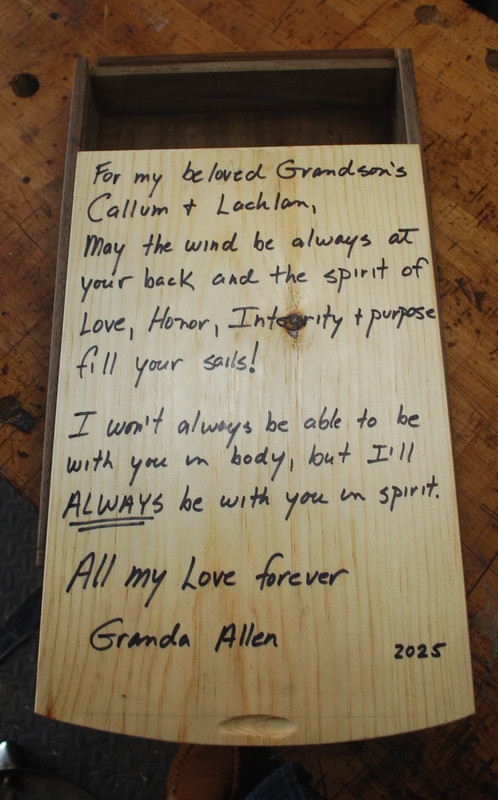 For my beloved Grandson's
Callum + Lachlan,
May the wind be always at
your back and the spirit of
Love, Honor, Integrity + purpose
fill your sails!
I won't always be able to be
with you in body, but I'll
ALWAYS be with you in spirit.
All my Love forever
Granda Allen
2025